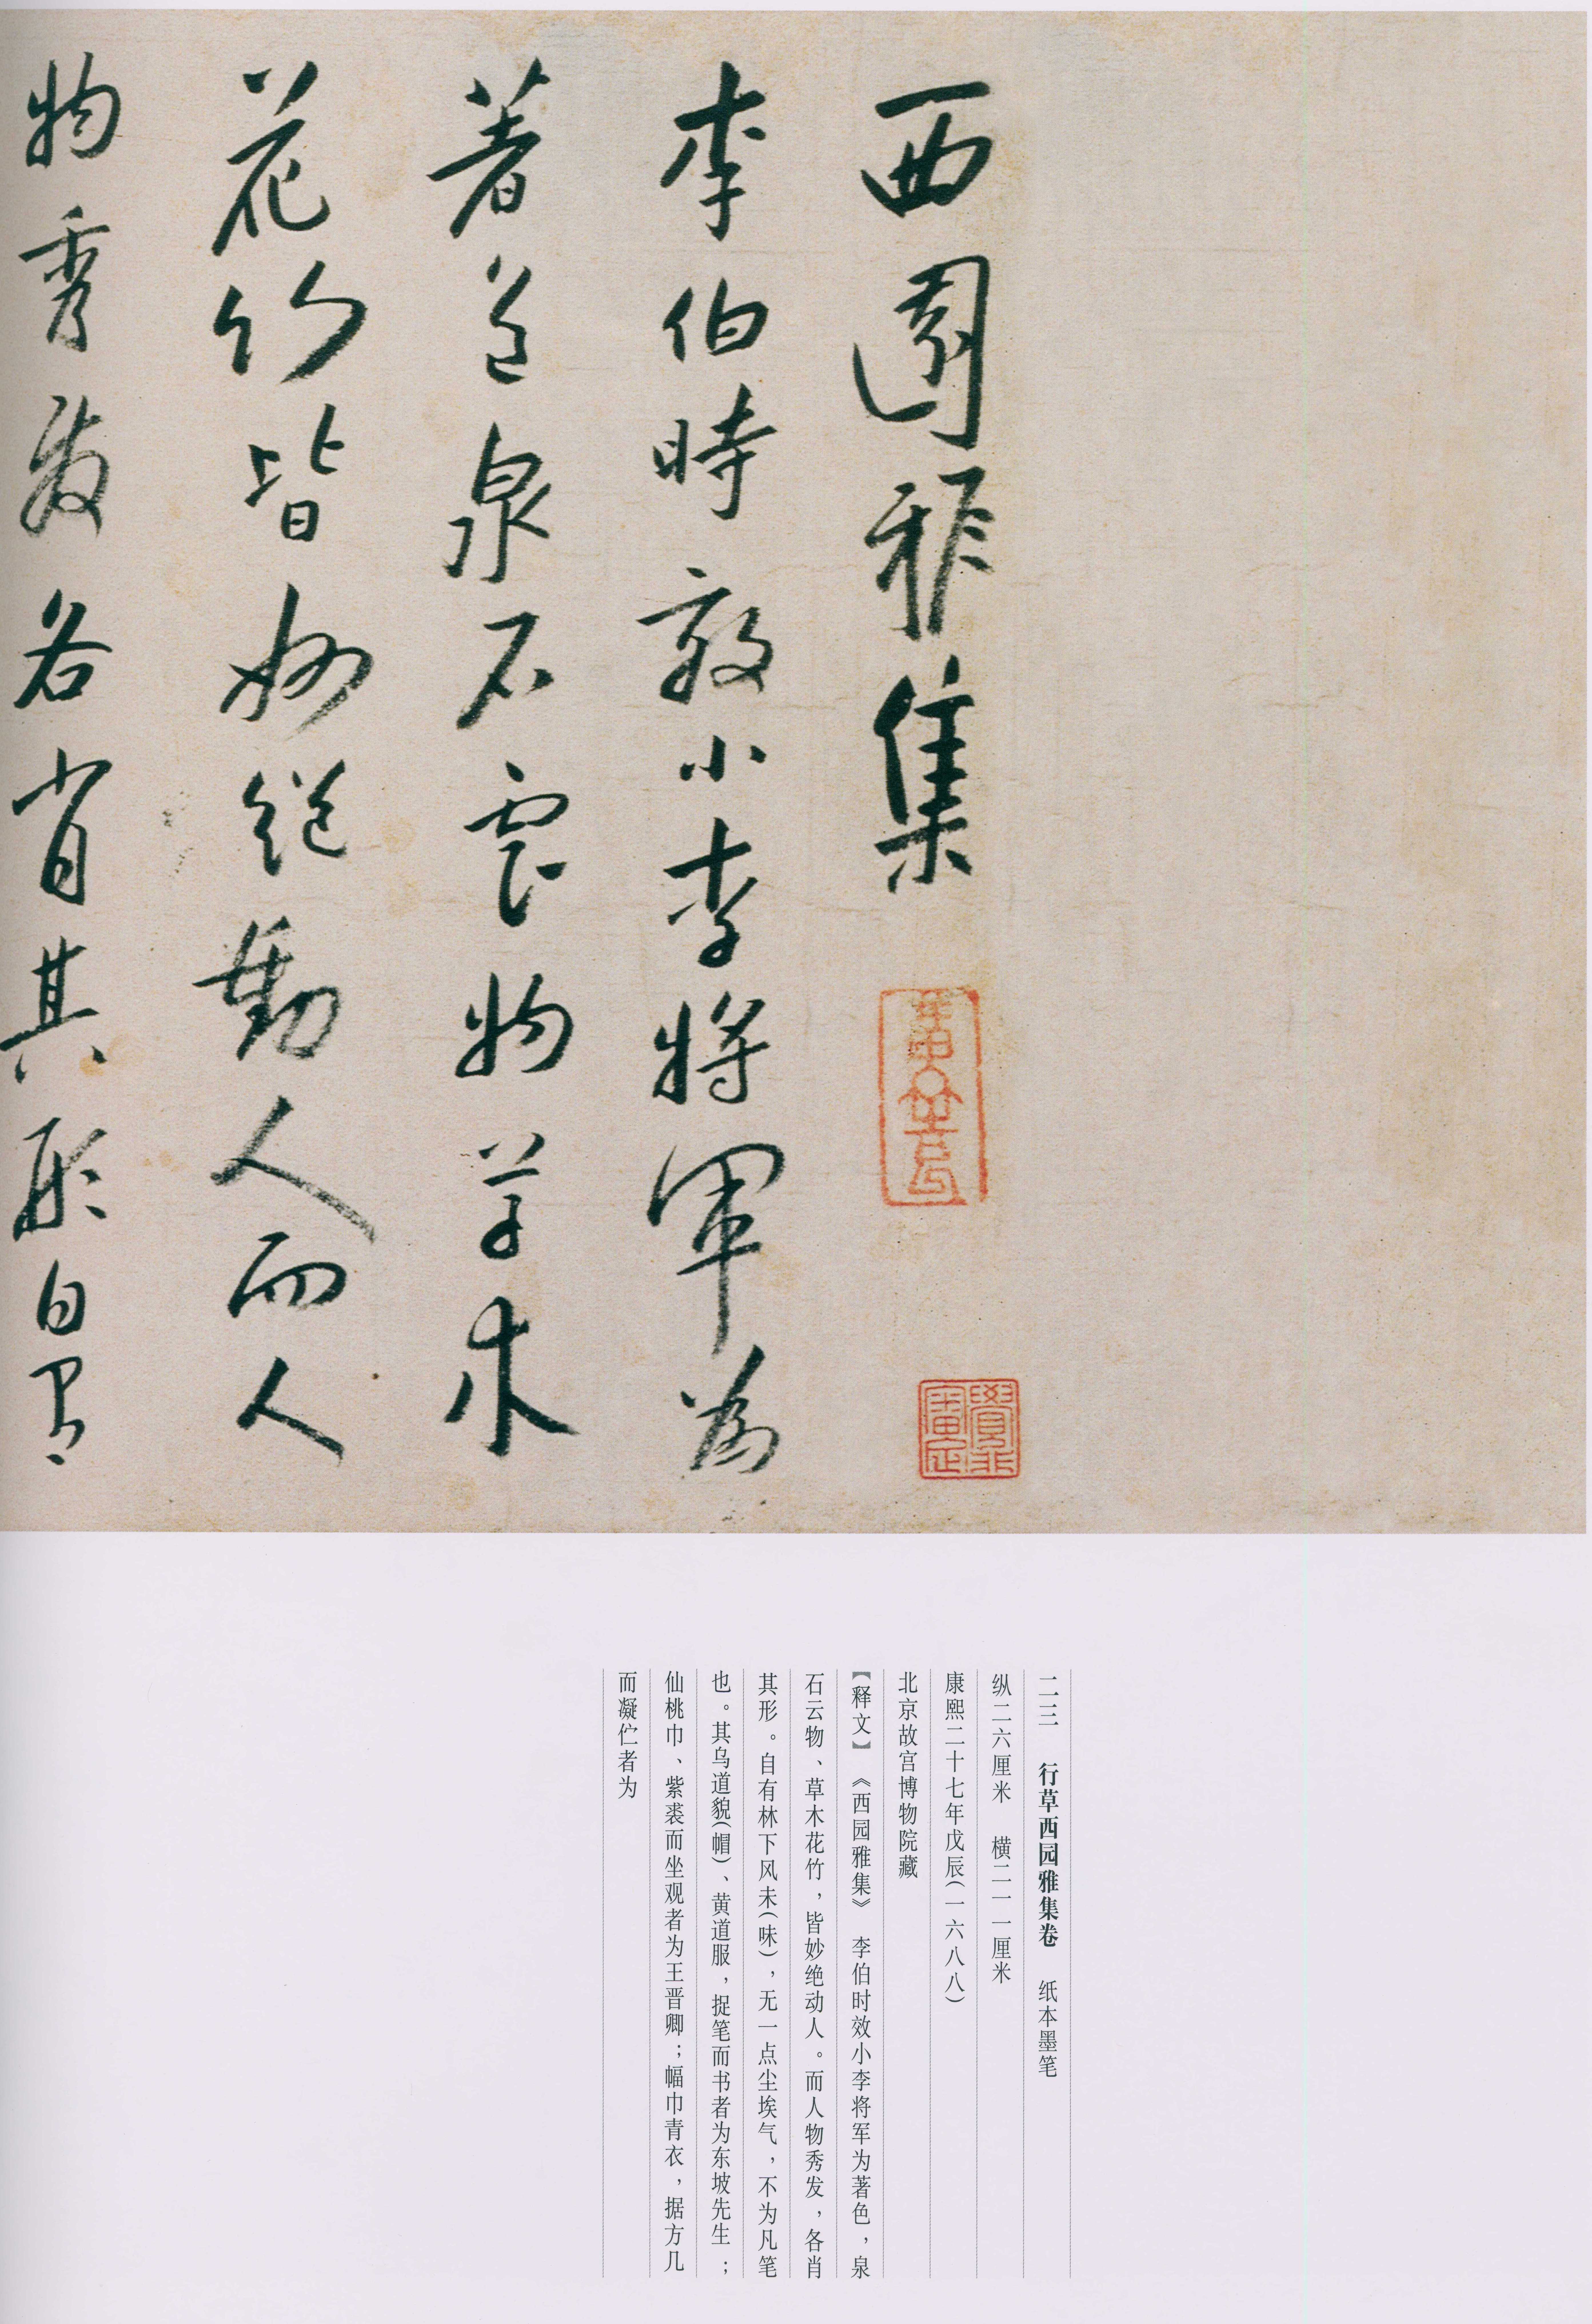 西園雅集
李伯時效小李將軍為
著色泉石雲物草木
花竹皆妙絕動人而人
物秀發各肖其形自有
二三　行草西园雅集卷　纸本墨笔
纵二六厘米　横二一一厘米
康熙二十七年戊辰(一六八八)
北京故宫博物院藏
【释文】《西园雅集》　李伯时效小李将军为著色，泉
石云物、草木花竹，皆妙绝动人。而人物秀发，各肖
其形。自有林下风未(味)，无一点尘埃气，不为凡笔
也。其乌道貌(帽)、黄道服，捉笔而书者为东坡先生；
仙桃巾、紫裘而坐观者为王晋卿；幅巾青衣，据方几
而凝伫者为